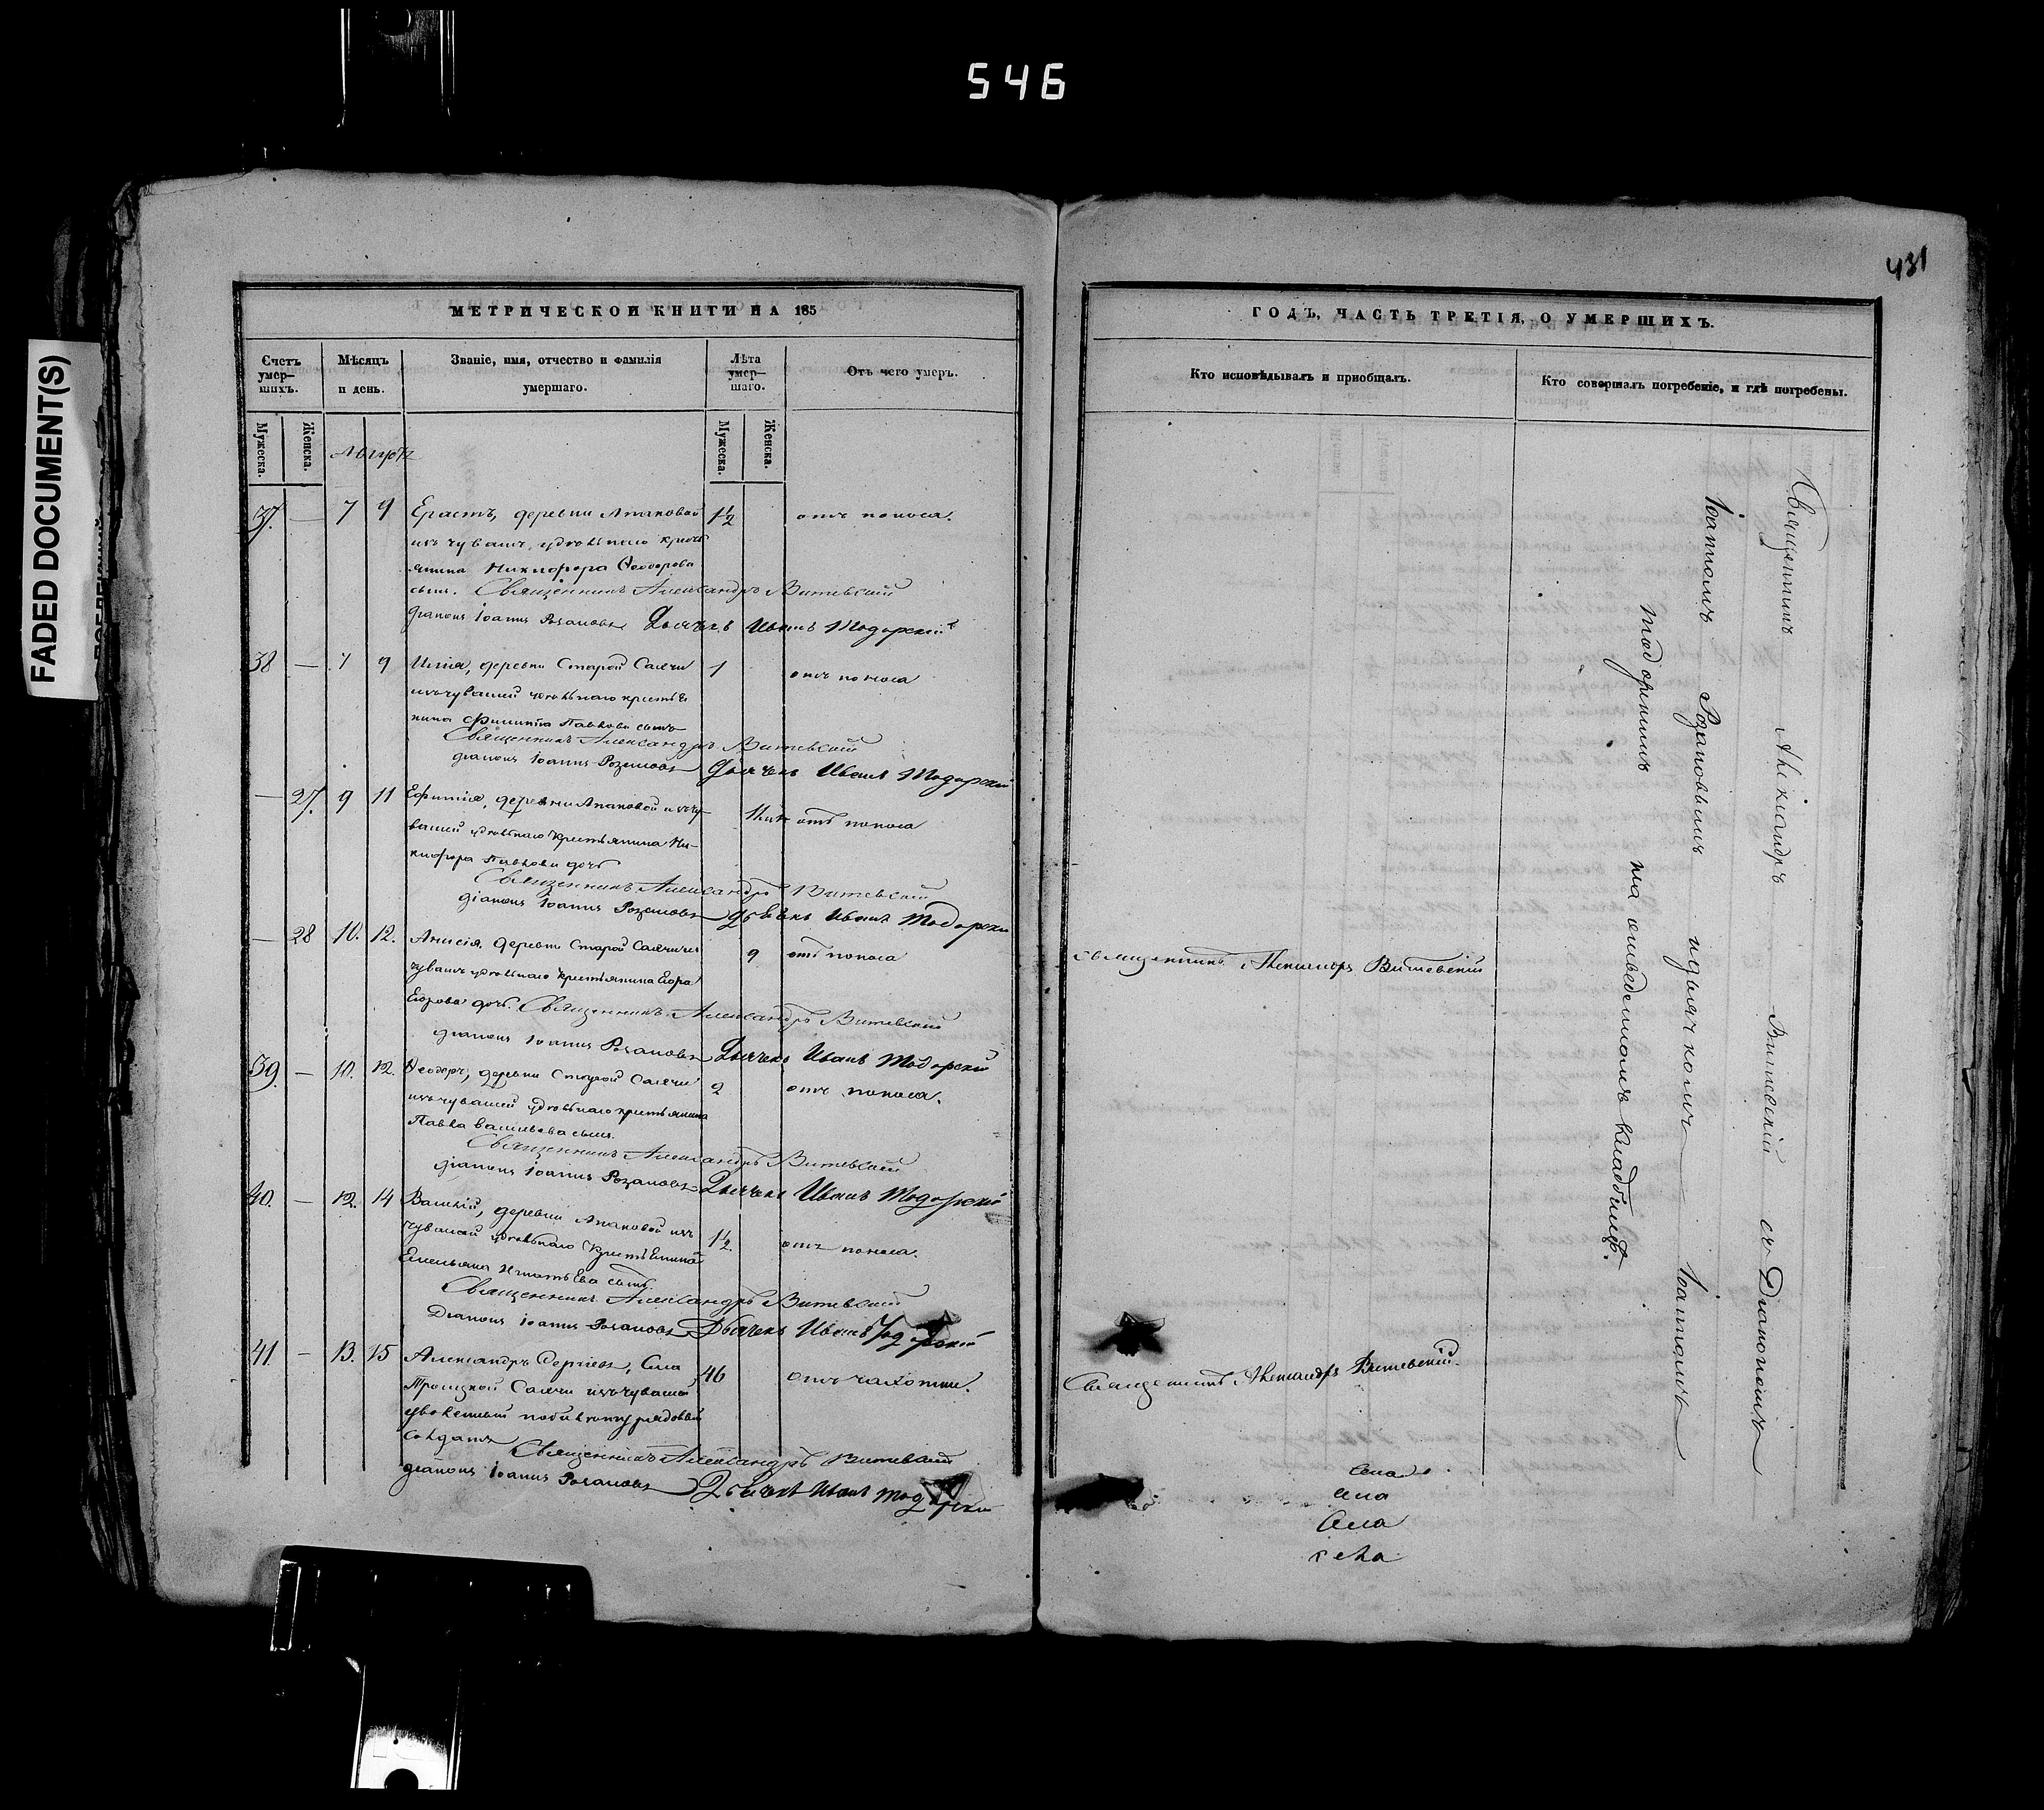 546
FADED DOCUMENT(S)
431
МЕТРИЧЕСКОЙ КНИГИ НА 185
Счетъ умер-
шихъ.
Мѣсяцъ
и день.
Званіе, имя, отчество и фамилія
умершаго.
Лѣта
умер-
шаго.
Отъ чего умеръ.
Мужеска.
Женска.
Мужеска.
Женска.
Августъ
37. — 7 9 Ерастъ, деревни Апаковой 1½ отъ поноса.
изъ чувашъ, удѣльнаго кресть
янина Никифора Ѳеодорова
сынъ. Священникъ Александръ Витевскій
діаконъ Іоаннъ Розановъ Дьячекъ Иванъ Модорскій
38 — 7 9 Илія, деревни Старой Салчи 1 отъ поноса
изъ чувашей удѣльнаго крестья
нина Филиппа Павлова сынъ
Священникъ Александръ Витевскій
діаконъ Іоаннъ Розановъ Дьячекъ Иванъ Модорскій
— 27. 9 11 Ефимія, деревни Апаковой изъ чу- отъ поноса
вашей удѣльнаго крестьянина Ни-
кифора Павлова дочь
Священникъ Александръ Витевскій
діаконъ Іоаннъ Розановъ Дьячекъ Иванъ Модорскій
— 28 10. 12. Анисія, деревни Старой Салчи изъ 9 отъ поноса
чувашъ удѣльнаго крестьянина Егора
Егорова дочь. Священникъ Александръ Витевскій
діаконъ Іоаннъ Розановъ Дьячекъ Иванъ Модорскій
39. — 10. 12. Ѳеодоръ, деревни Старой Салчи 2 отъ поноса.
изъ чувашей удѣльнаго крестьянина
Павла Васильева сынъ.
Священникъ Александръ Витевскій
діаконъ Іоаннъ Розановъ Дьячекъ Иванъ Модорскій
40. — 12. 14 Василій, деревни Апаковой изъ 1½ отъ поноса.
чувашей удѣльнаго крестьянина
Емельяна Игнатьева сынъ
Священникъ Александръ Витевскій
Діаконъ Іоаннъ Розановъ Дьячекъ Иванъ Модорскій
41 — 13. 15 Александръ Сергіевъ, села 46 отъ чахотки.
Троицкой Салчи изъ чувашей
уволенный рядовый
солдатъ
Священникъ Александръ Витевскій
діаконъ Іоаннъ Розановъ Дьячекъ Иванъ Модорскій
ГОДЪ, ЧАСТЬ ТРЕТІЯ, О УМЕРШИХЪ.
Кто исповѣдывалъ и пріобщалъ.
Кто совершалъ погребеніе, и гдѣ погребены.
Священникъ Александръ Витевскій
Священникъ Александръ Витевскій
Священникъ Александръ Витевскій съ Діакономъ
Іоанномъ Розановымъ и дьячкомъ Іоанномъ
Модорскимъ на отведенномъ кладбищѣ.
села